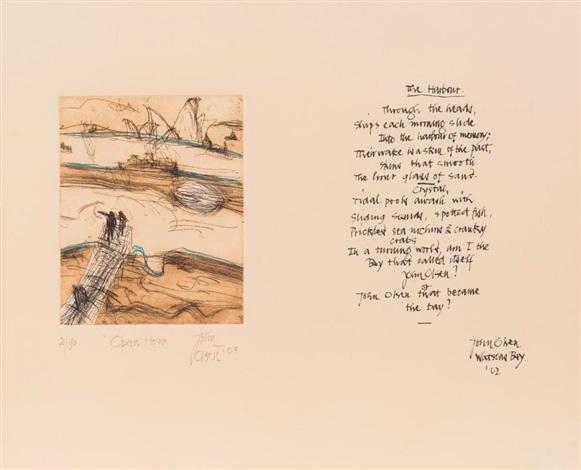 The Harbour.
Through the heads,
Ships each morning slide
Into the harbour of memory;
Their wake skin of the past,
that smooth
The glass of sand.
Crystal,
Tidal pools awash with
Sliding sands, spotted fish,
sea urchins & cranky
crabs
In a turning world, am I the
Bay that called itself
John Olsen?
or
John Olsen that became
the bay?
John Olsen
Watsons Bay
'02
John
Olsen '03